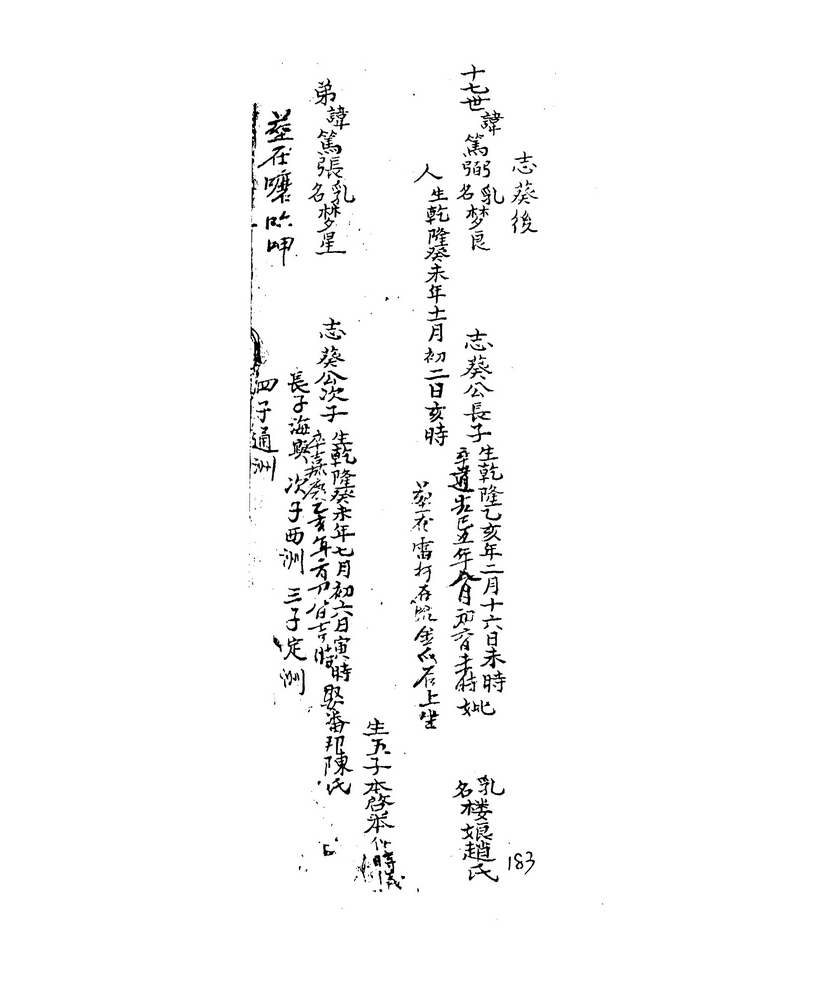 志葵後
十七世 諱篤弼 乳名梦良 志葵公長子 生乾隆乙亥年二月十六日未時 卒道光己丑年八月初六日未時 妣 乳名楼娘趙氏
人 生乾隆癸未年十一月初二日亥時 葬在雷打石 金瓜石上坐
生五子 本 啓 本
弟諱篤張 乳名梦星 志葵公次子 生乾隆癸未年七月初六日寅時 卒嘉慶乙亥年 時 娶 陳氏
長子海興 次子西洲 三子定洲
葬在
四子通洲
183